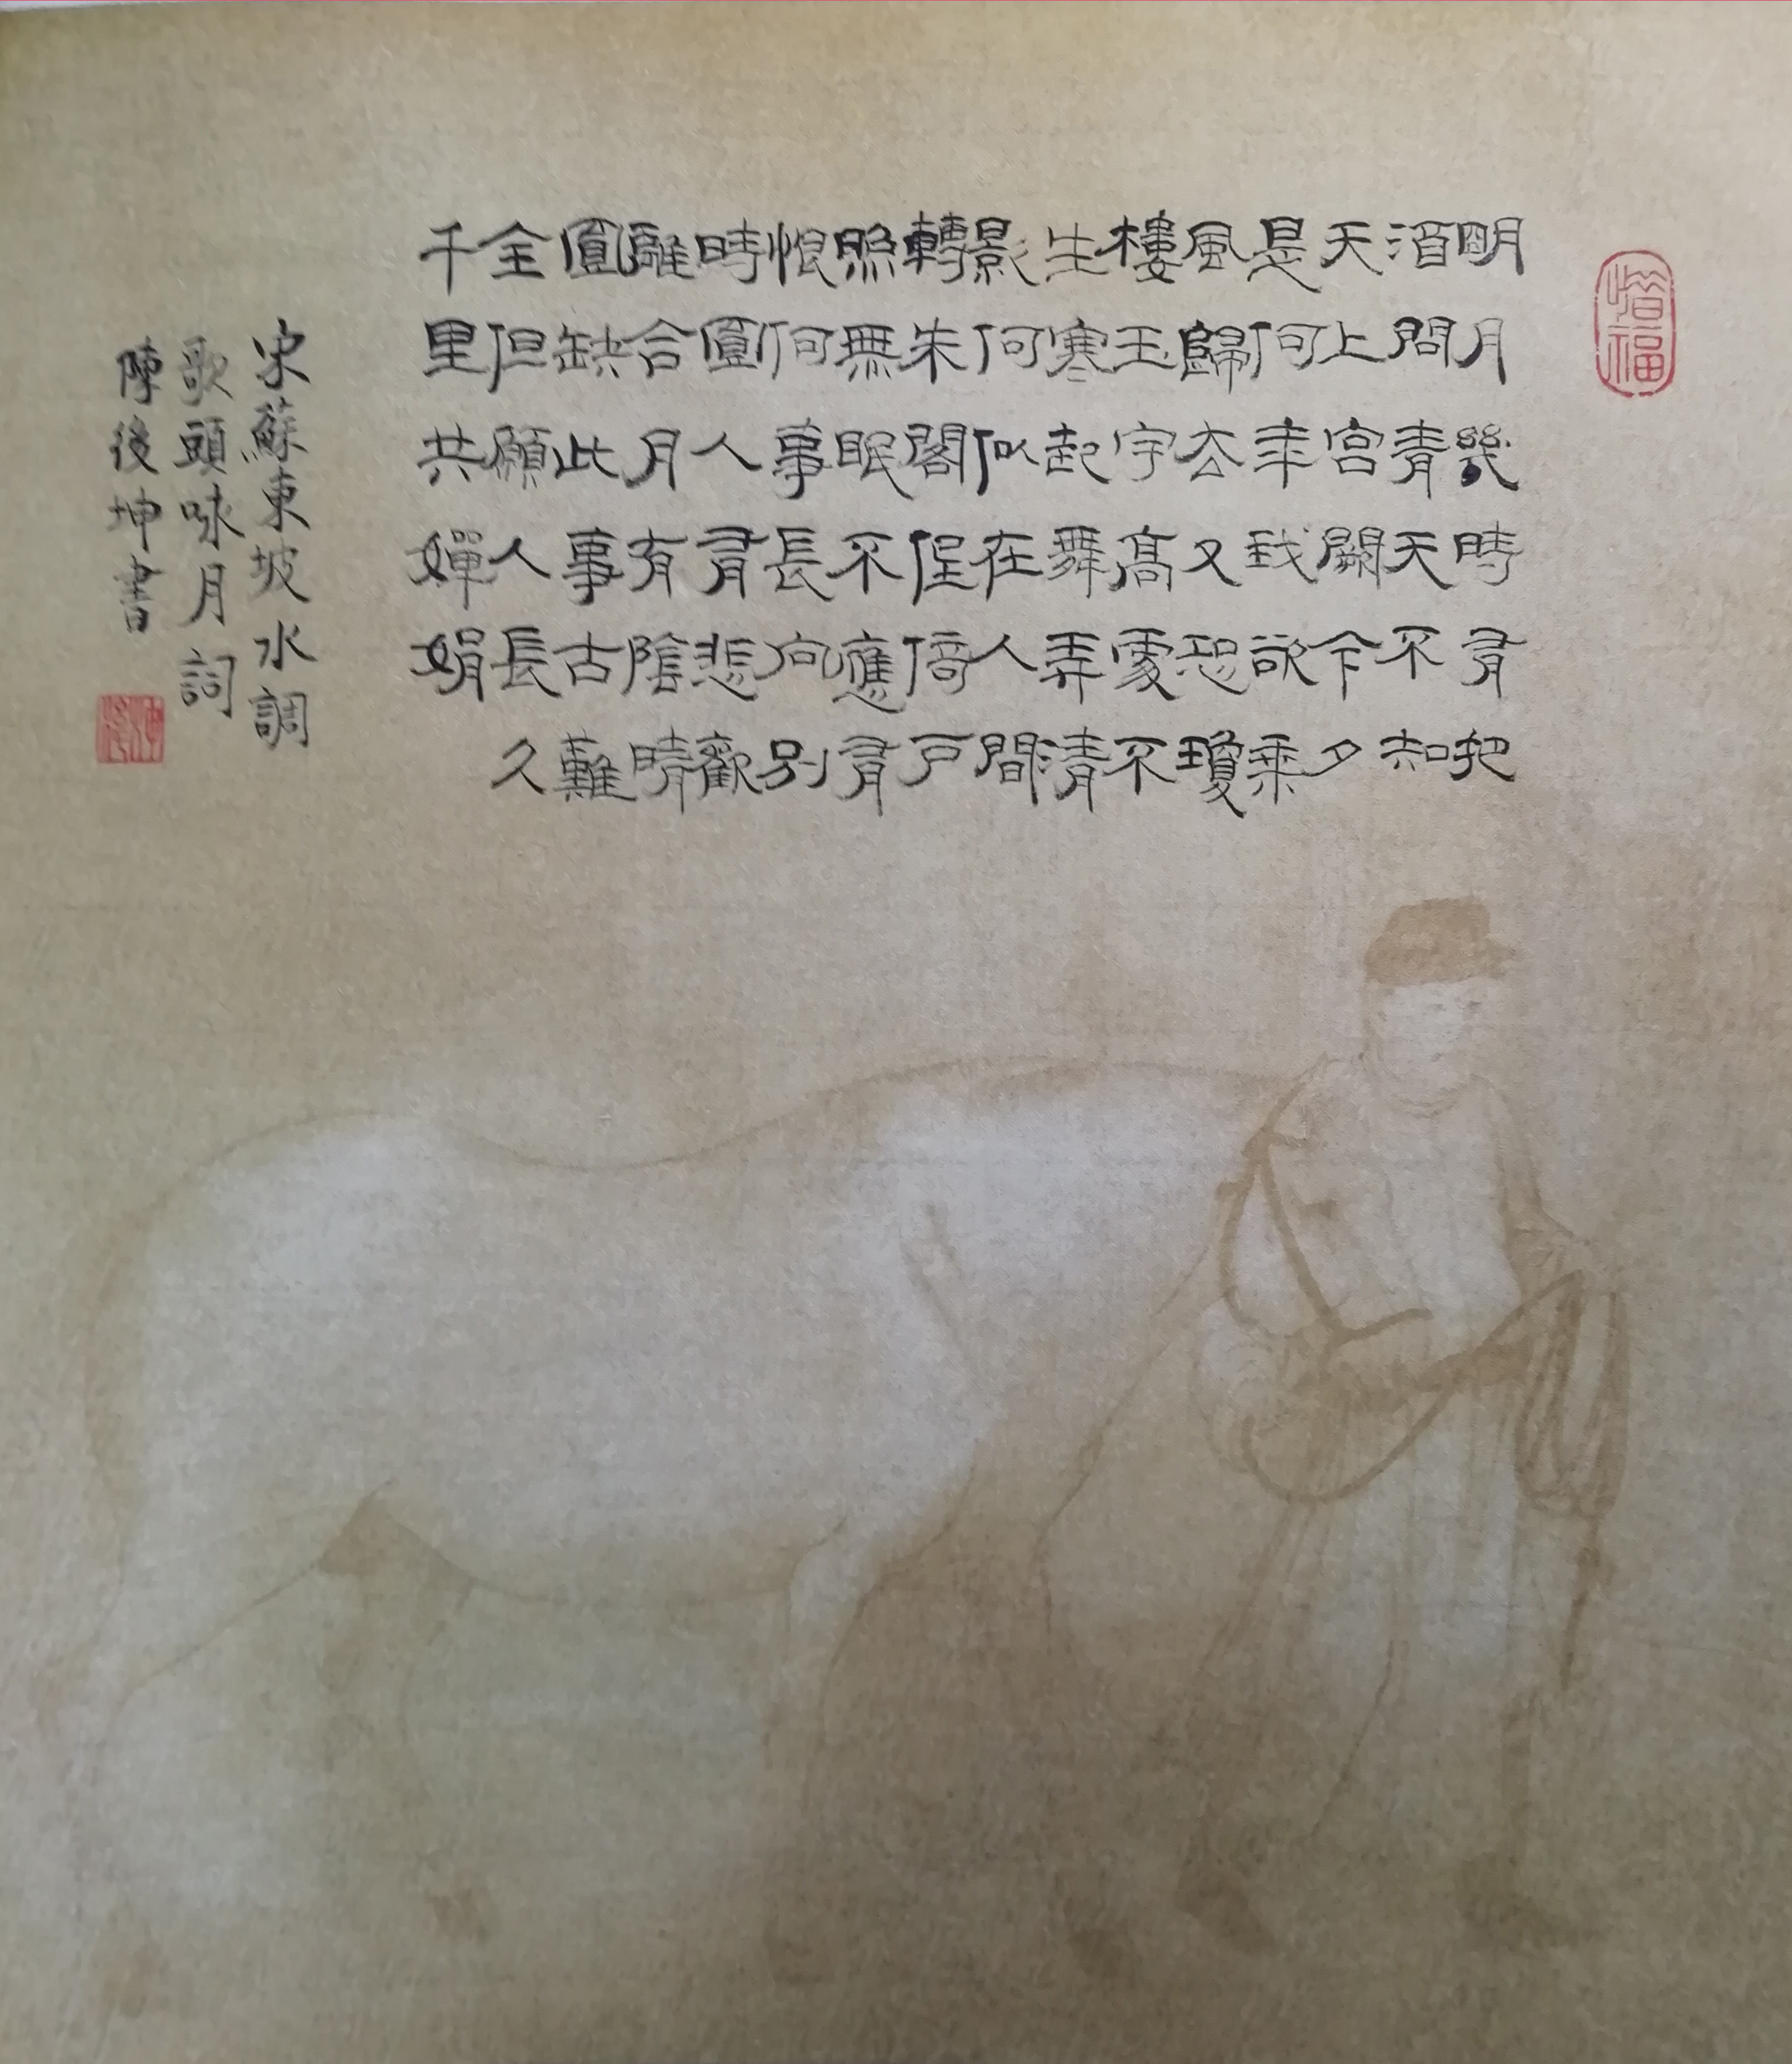 惜福
明月幾時有把
酒問青天不知
天上宮闕今夕
是何年我欲乘
風歸去又恐瓊
樓玉宇高處不
生寒起舞弄清
影何似在人間
轉朱閣低倚戶
照無眠不應有
恨何事長向別
時圓人有悲歡
離合月有陰晴
圓缺此事古難
全但願人長久
千里共嬋娟
宋蘇東坡水調
歌頭咏月詞
陳後坤書